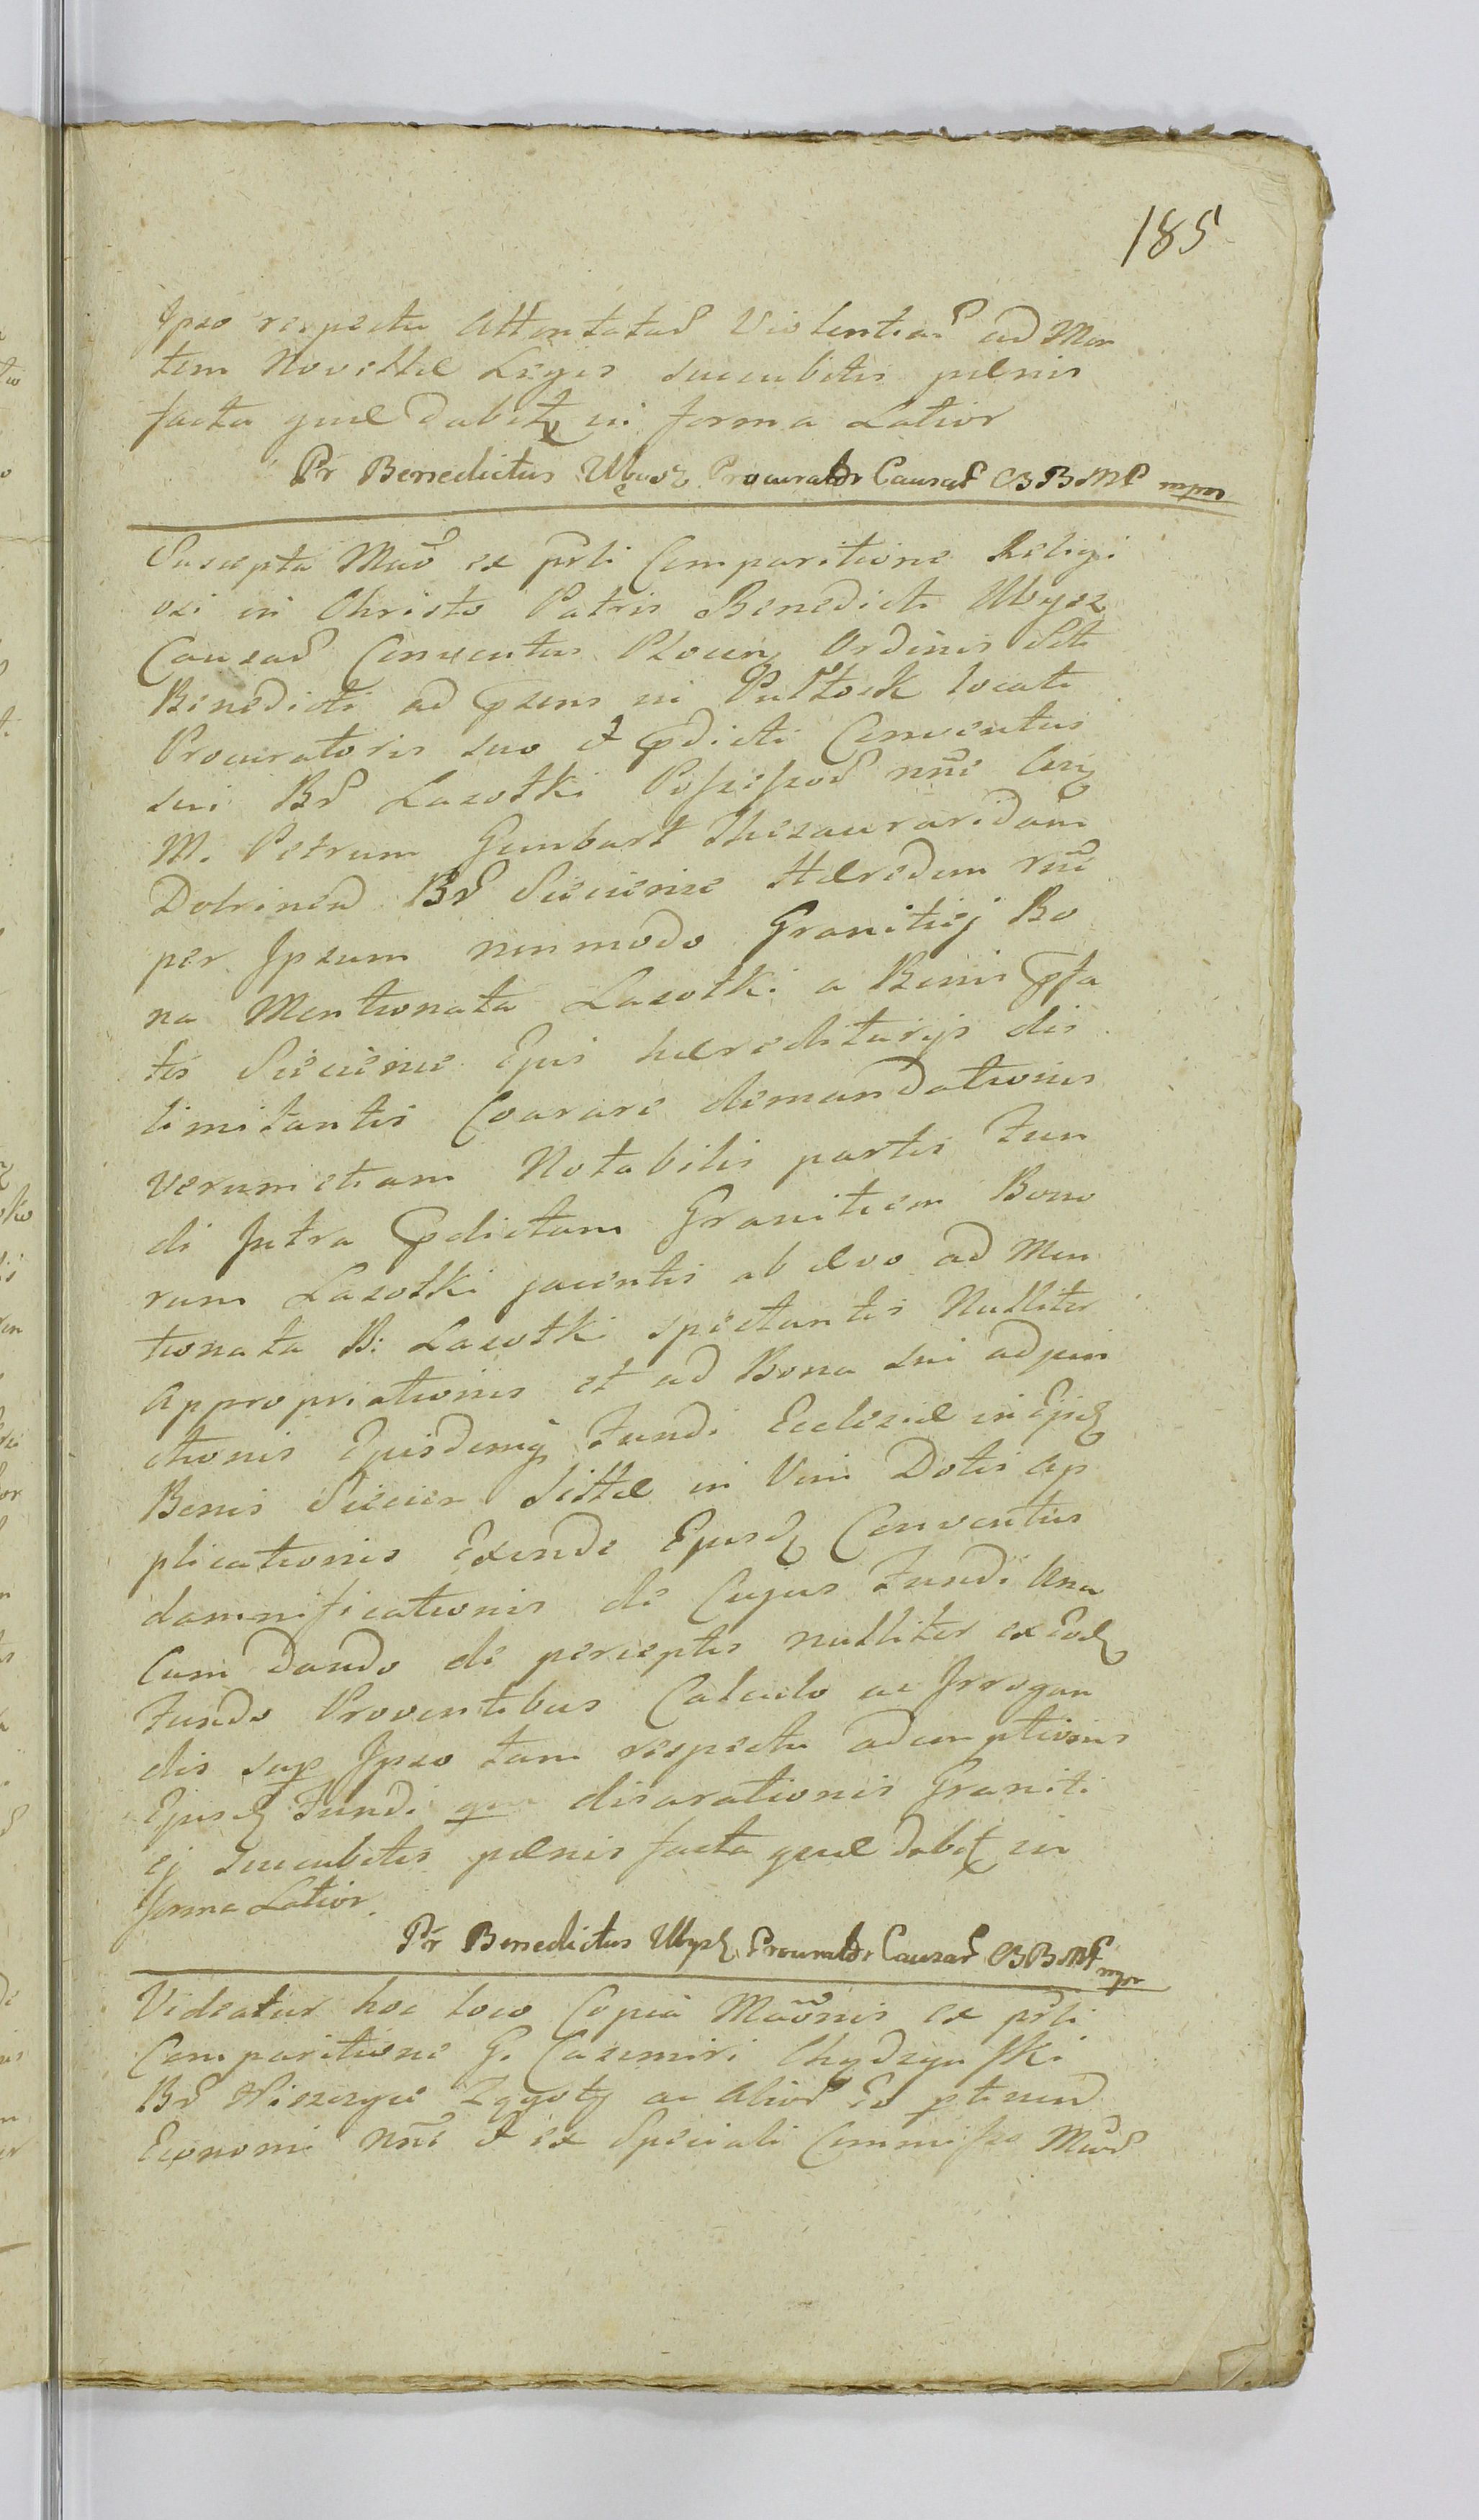 185
Ipso respectu Attentatar Violentiar ad Men
tem Novellæ Legis succubitis pænis
facta quæ dabit in forma Latior
Pr Benedictus Procurator Causar BBMP mpr
Suscepta Mao ex prli Comparitione Religi
osi in Christo Patris Benedicti Ubysz
Causar Conventus Plocen Ordinis Sti
Benedicti ad præsens in Pułtosk locati
Procuratoris suo et prædicti Conventus
sui Br Lasotki Possessor nne Con
M. Petrum Gumbart Thesauraridam
Dobrinen Br Siecienie Hæredem rne
per Ipsum non modo Granitiej Bo
na Mentionata Lasotki a Bonis præfa
tis Siecienie Ejus hæreditarijs dis
limitantis Coarare demandationis
verum etiam Notabilis partis Fun
di Intra prædictam Granitiem Bono
rum Lasotki jacentis ab ævo ad Men
tionata B: Lasotki spectantis Nulliter
Appropriationis et ad Bona sui adjun
ctionis Ejusdemq Fundi Ecclesiæ in Ejusd
Bonis Siecien Sittæ in Vim Dotis Ap
plicationis Exinde Ejusd Conventus
damnificationis de Cujus Fundi Una
Cum dando de perceptis nulliter ex Eod
Fundo Proventibus Calculo ac Irrogan
dis sup Ipso tam respectu ademptionis
Ejusd Fundi qm disarationis Graniti
ej Succubitis pænis facta quæ dabit in
forma Latior.
Pr Benedictus Ubysz Procurator Causar BBMP mpr
Videatur hoc loco Copia Maonis ex prli
Comparitione G. Casimiri Chydzyński
Br ac Alior Eo ptinen
Economi nne et ex Speciali Commisso Mwd